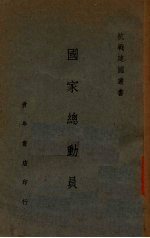 抗戰建國叢書
國家總動員
青年書店印行